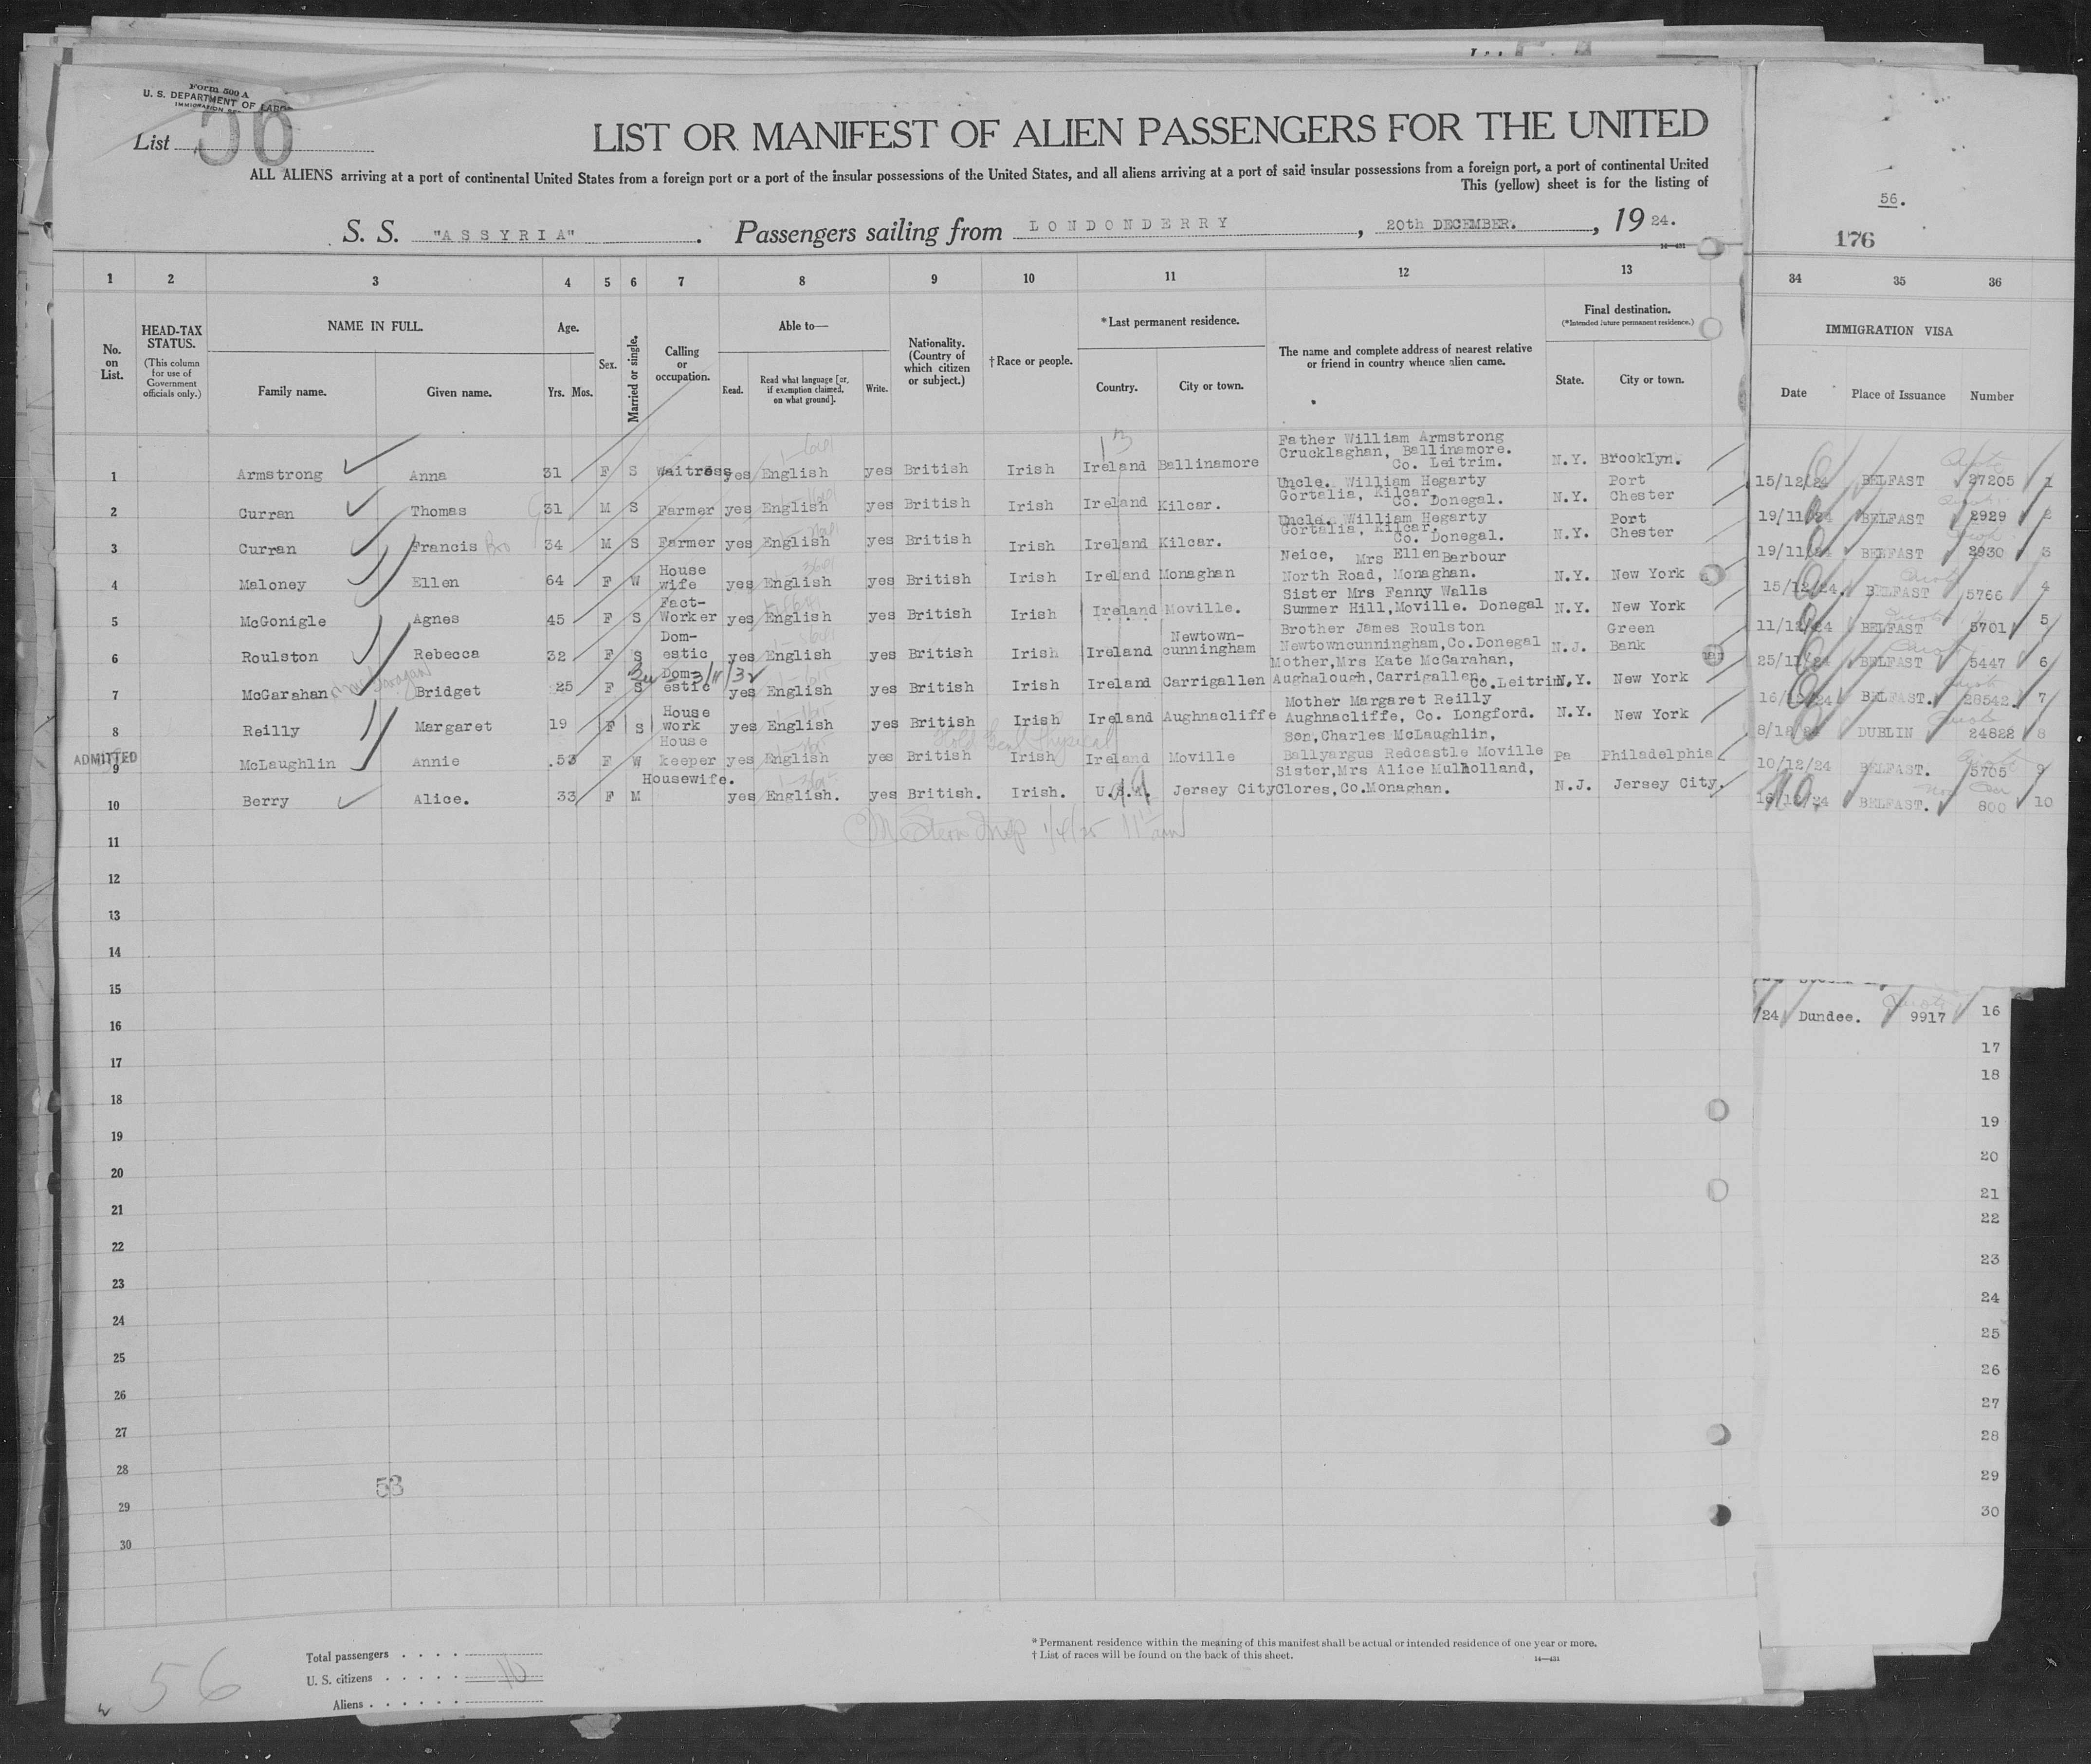 Form 500 A
U. S. DEPARTMENT OF LABOR
List 56
LIST OR MANIFEST OF ALIEN PASSENGERS FOR THE UNITED
ALL ALIENS arriving at a port of continental United States from a foreign port or a port of the insular possessions of the United States, and all aliens arriving at a port of said insular possessions from a foreign port, a port of continental United
This (yellow) sheet is for the listing of
S. S. "ASSYRIA". Passengers sailing from LONDONDERRY, 20th DECEMBER., 1924.
14—431
56.
176
1 2 3 4 5 6 7 8 9 10 11 12 13 34 35 36
No. on List.
HEAD-TAX STATUS.
(This column for use of Government officials only.)
NAME IN FULL.
Family name. Given name.
Age.
Yrs. Mos.
Sex.
Married or single.
Calling or occupation.
Able to—
Read.
Read what language [or, if exemption claimed, on what ground].
Write.
Nationality. (Country of which citizen or subject.)
†Race or people.
*Last permanent residence.
Country. City or town.
The name and complete address of nearest relative or friend in country whence alien came.
Final destination.
(*Intended future permanent residence.)
State. City or town.
IMMIGRATION VISA
Date Place of Issuance Number
1 Armstrong Anna 31 F S Waitress yes English yes British Irish Ireland Ballinamore Father William Armstrong Crucklaghan, Ballinamore. Co. Leitrim. N.Y. Brooklyn. 15/12/24 BELFAST 27205 1
2 Curran Thomas 31 M S Farmer yes English yes British Irish Ireland Kilcar. Uncle. William Hegarty Gortalia, Kilcar, Co. Donegal. N.Y. Port Chester 19/11/24 BELFAST 2929 2
3 Curran Francis Bro 34 M S Farmer yes English yes British Irish Ireland Kilcar. Uncle. William Hegarty Gortalia, Kilcar, Co. Donegal. N.Y. Port Chester 19/11/24 BELFAST 2930 3
4 Maloney Ellen 64 F W House wife yes English yes British Irish Ireland Monaghan Neice, Mrs Ellen Barbour North Road, Monaghan. N.Y. New York 15/12/24. BELFAST 5766 4
5 McGonigle Agnes 45 F S Fact- Worker yes English yes British Irish Ireland Moville. Sister Mrs Fanny Walls Summer Hill, Moville. Donegal N.Y. New York 11/12/24 BELFAST 5701 5
6 Roulston Rebecca 32 F S Dom- estic yes English yes British Irish Ireland Newtown- cunningham Brother James Roulston Newtowncunningham, Co.Donegal N.J. Green Bank 25/11/24 BELFAST 5447 6
7 McGarahan Bridget 25 F S Dom- estic 3/11/32 yes English yes British Irish Ireland Carrigallen Mother, Mrs Kate McGarahan, Aughalough, Carrigallen, Co.Leitrim. N.Y. New York 16/12/24 BELFAST. 28542. 7
8 Reilly Margaret 19 F S House work yes English yes British Irish Ireland Aughnacliffe Mother Margaret Reilly Aughnacliffe, Co. Longford. N.Y. New York 8/12/24 DUBLIN 24828 8
ADMITTED
9 McLaughlin Annie 53 F W House keeper yes English yes British Irish Ireland Moville Son, Charles McLaughlin, Ballyargus Redcastle Moville Pa Philadelphia 10/12/24 BELFAST. 5705 9
10 Berry Alice. 33 F M Housewife. yes English. yes British. Irish. U.S.A. Jersey City Sister, Mrs Alice Mulholland, Clores, Co.Monaghan. N.J. Jersey City. 16/12/24 BELFAST. 800 10
11
12
13
14
15
16 /24 Dundee. 9917 16
17 17
18 18
19 19
20 20
21 21
22 22
23 23
24 24
25 25
26 26
27 27
28 28
29 29
30 30
53
56
Total passengers
U. S. citizens 10
Aliens
* Permanent residence within the meaning of this manifest shall be actual or intended residence of one year or more.
† List of races will be found on the back of this sheet.
14—431